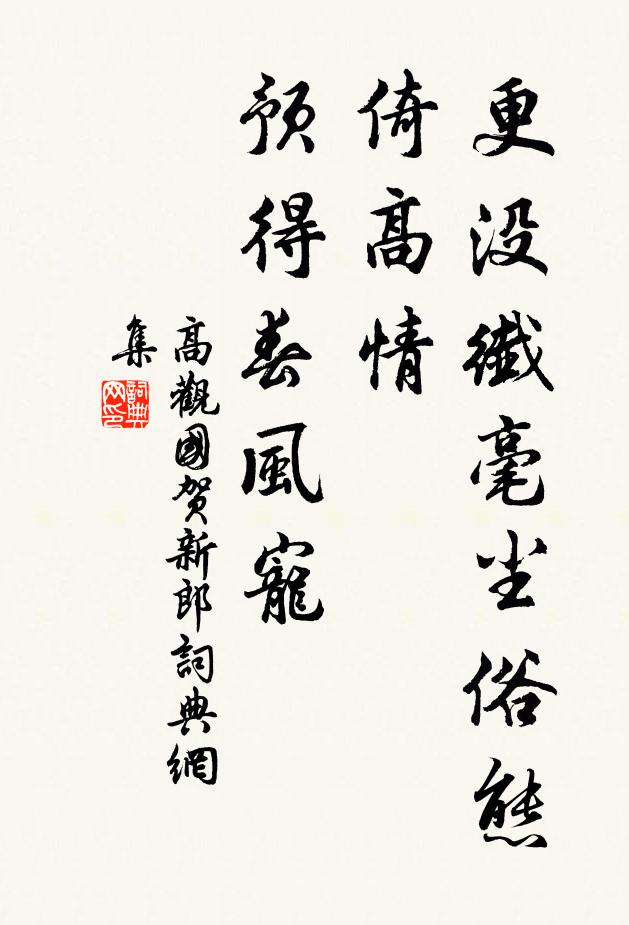 更没纖毫尘俗態
倚高情
預得春風寵
高觀國賀新郎詞典網
集
詞典
网印